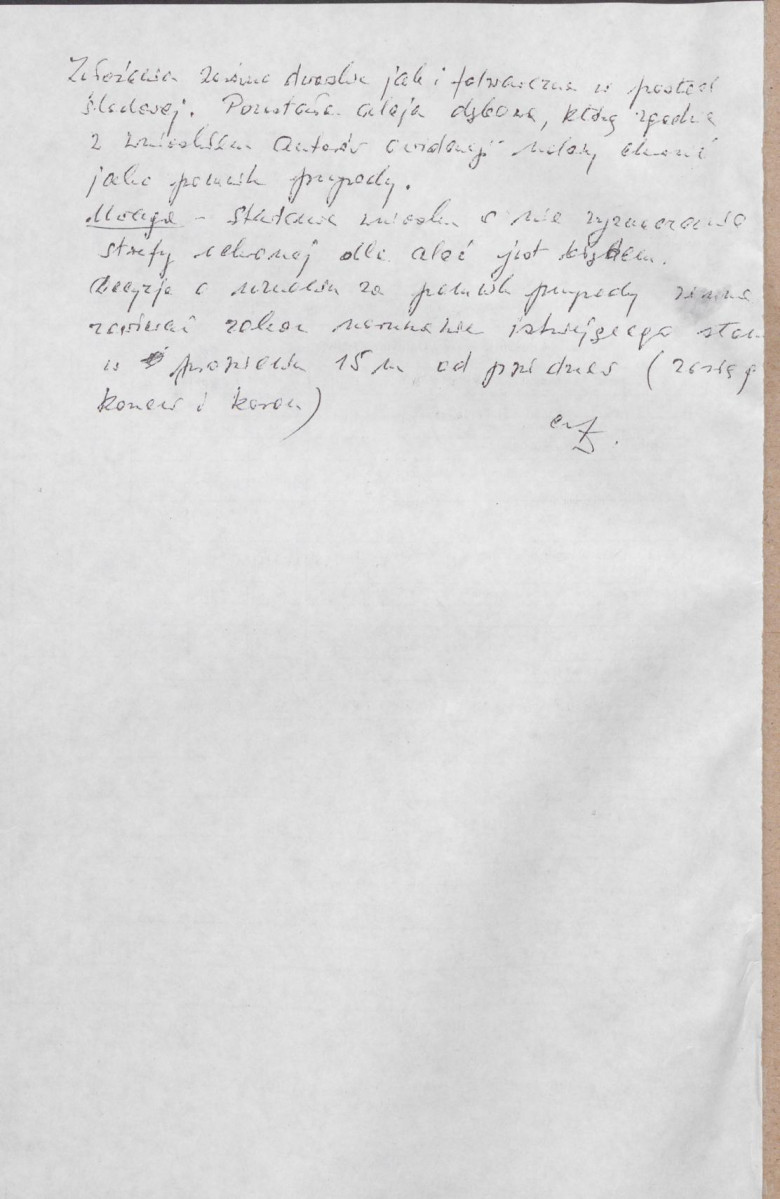 Założenia zarówno dworskie jak i folwarczne w postaci
śladowej. Pozostała aleja dębowa, którą zgodnie
z wnioskiem autorów ewidencji należy chronić
jako pomnik przyrody.
Uwaga - stawianie wniosku o nie wyznaczanie
strefy ochronnej dla alei jest błędem.
Decyzja o uznaniu za pomnik przyrody winna
zawierać zakaz naruszania istniejącego stanu
w promieniu 15 m od pni drzew (zasięg
korzeni i koron)